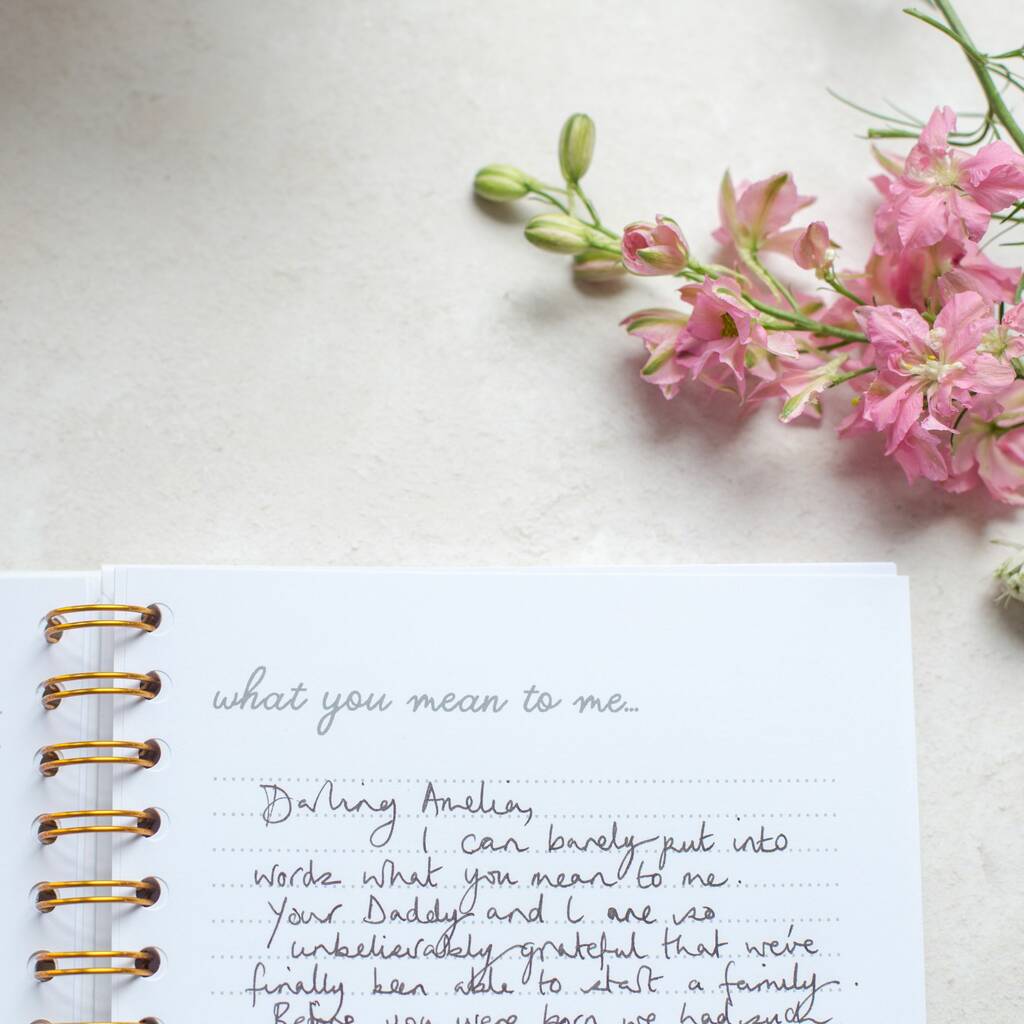 what you mean to me...
Darling Amelia,
I can barely put into
words what you mean to me.
Your Daddy and I are so
unbelievably grateful that we've
finally been able to start a family.
Before you were born we had such